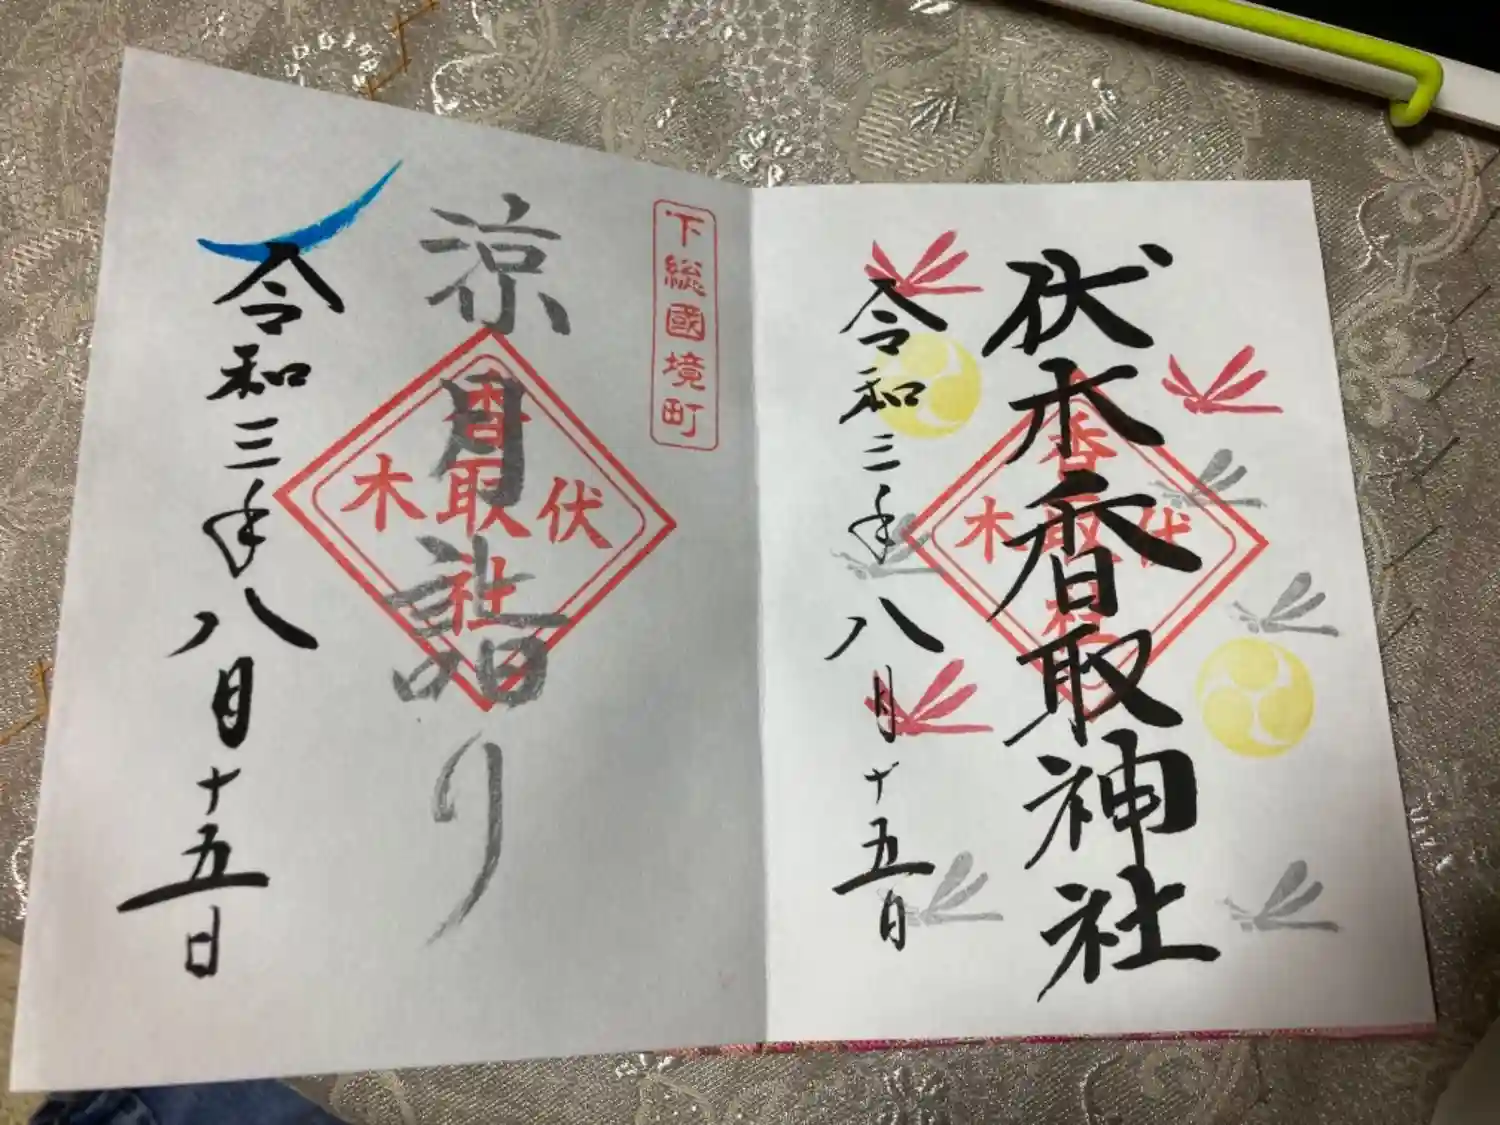 伏木香取神社
令和三年八月十五日
伏木
香取社
下総國境町
涼月詣り
伏木
香取社
令和三年八月十五日